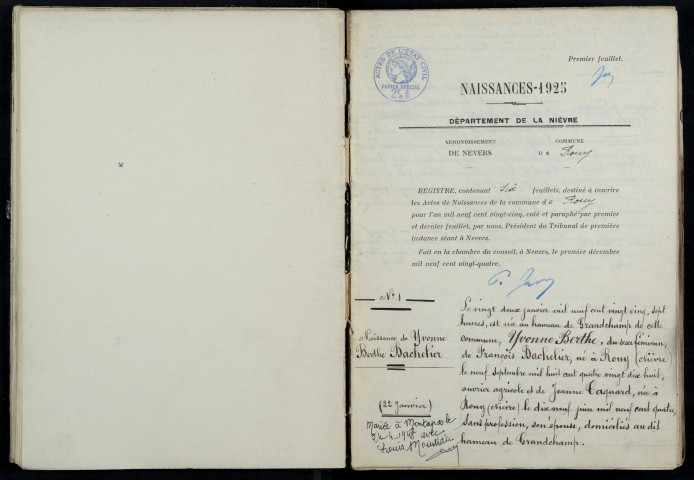 ACTES DE L'ÉTAT CIVIL
PAPIER SPÉCIAL
Premier feuillet.
NAISSANCES-1925
DÉPARTEMENT DE LA NIÈVRE
ARRONDISSEMENT
DE NEVERS
COMMUNE
De Rouy
REGISTRE, contenant six feuillets, destiné à inscrire
les Actes de Naissances de la commune de Rouy
pour l'an mil neuf cent vingt-cinq, coté et paraphé par premier
et dernier feuillet, par nous, Président du Tribunal de première
instance séant à Nevers.
Fait en la chambre du conseil, à Nevers, le premier décembre
mil neuf cent vingt-quatre.
N° 1
Naissance de Yvonne
Berthe Bachelier
(22 Janvier)
Mariée à
avec
Louis
Le vingt deux janvier mil neuf cent vingt cinq, sept
heures, est née au hameau de Grandchamp de cette
commune, Yvonne Berthe, du sexe féminin,
de François Bachelier, né à Rouy (Nièvre)
le neuf septembre mil huit cent quatre vingt dix huit,
ouvrier agricole et de Jeanne Cagnard, née à
Rouy (Nièvre) le dix neuf juin mil neuf cent quatre,
sans profession, son épouse, domiciliés au dit
hameau de Grandchamp.